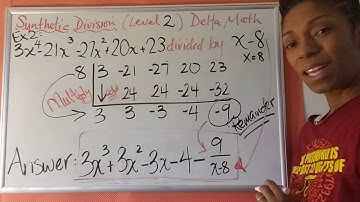 Synthetic Division (Level 2) Delta Math
Ex2:
3x⁴-21x³-27x²+20x+23 divided by x-8
x=8
8 | 3 -21 -27 20 23
Multiply add 24 24 -24 -32
3 3 -3 -4 -9
Remainder
Answer: 3x³+3x²-3x-4-9/(x-8)